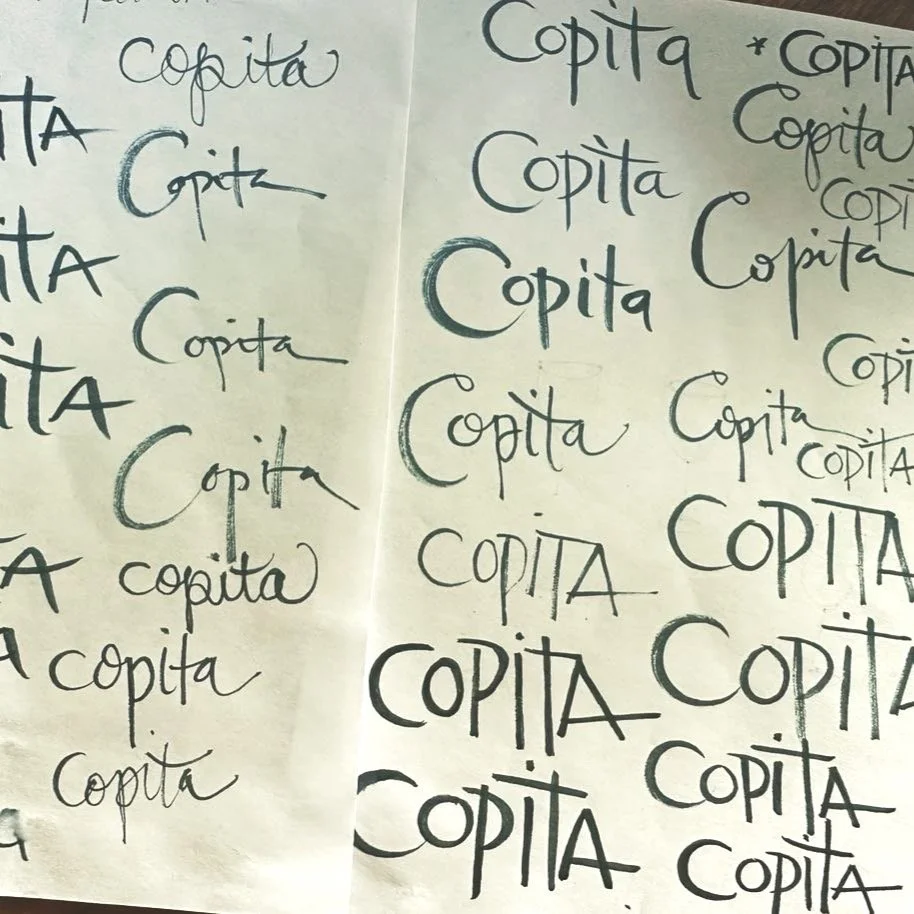 copita
iTA
Copita
iTA
Copita
iTA
Copita
TA
copita
A
copita
Copita
a
Copita
Copita
Copita
Copita
COPITA
COPITA
COPITA
* COPITA
Copita
COPI
Copita
Copi
Copita
COPITA
COPITA
COPITA
COPITA
COPITA